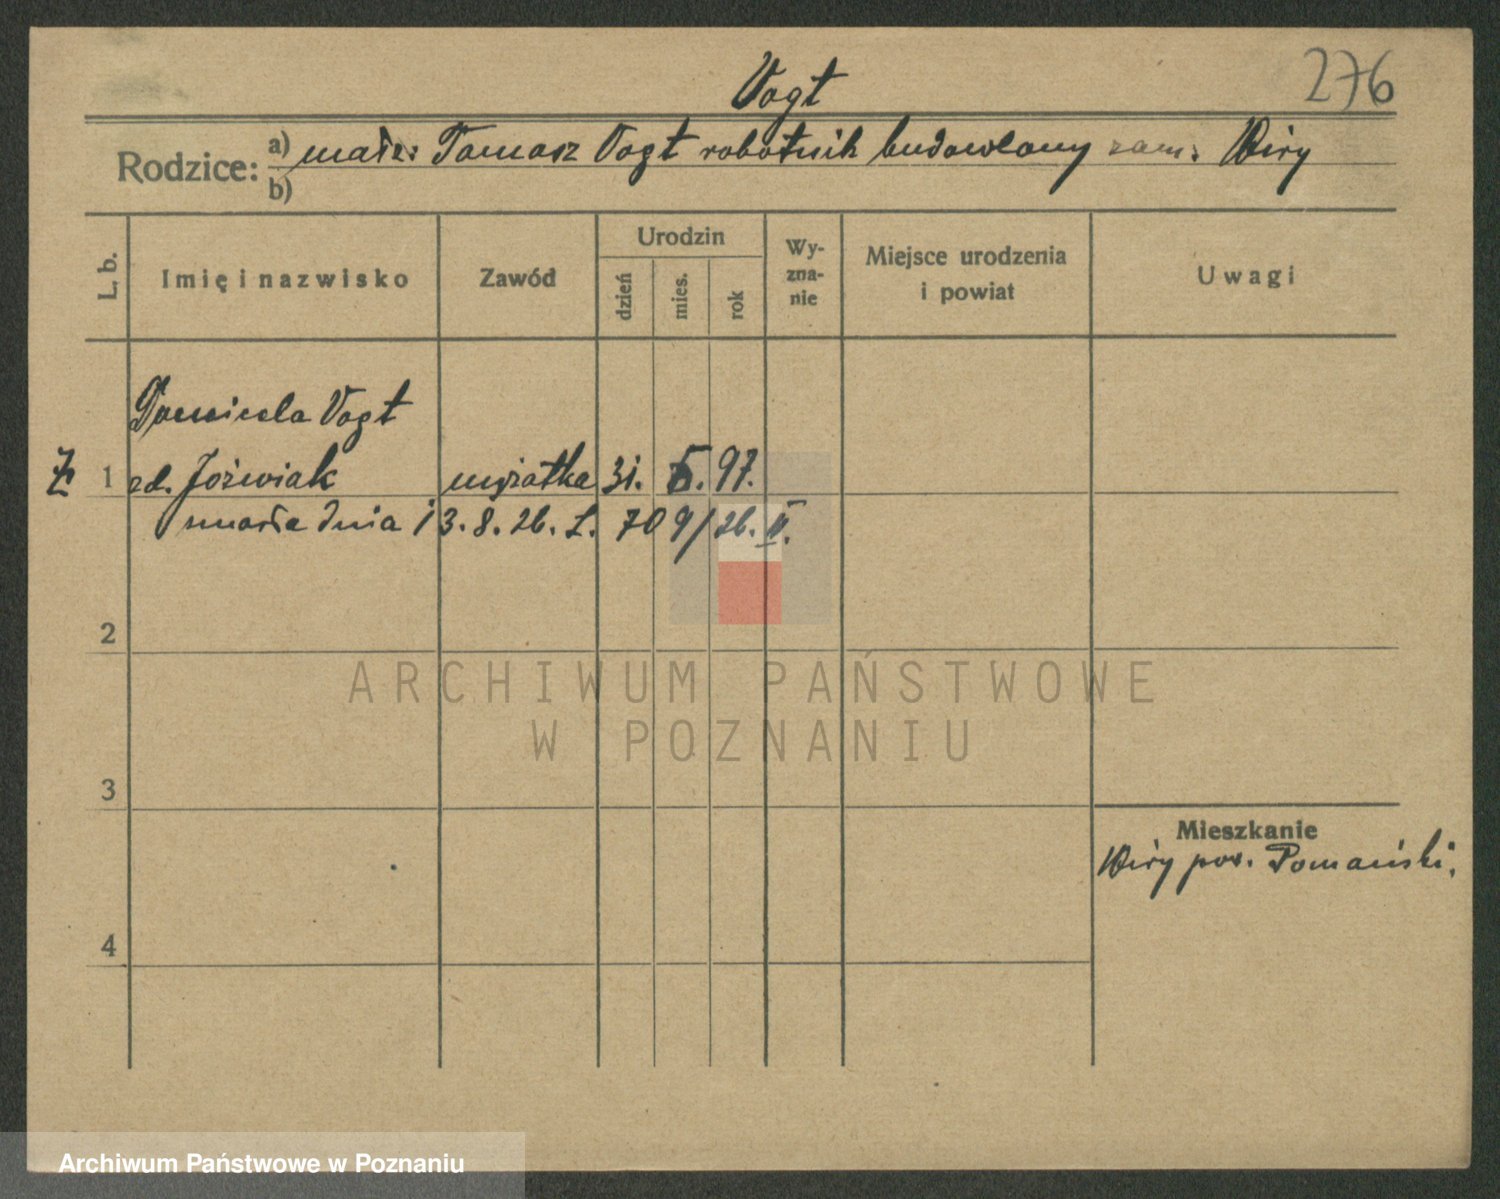 Vogt
276
Rodzice:
a) małż: Tomasz Vogt robotnik budowlany zam: Wiry
b)
L. b.
Imię i nazwisko
Zawód
Urodzin
dzień
mies.
rok
Wy-
zna-
nie
Miejsce urodzenia
i powiat
Uwagi
Domicela Vogt
1 zd. Jóżwiak mężatka 31. 5. 97.
umarła dnia 13.8.26. L. 709/26. II.
2
3
4
Mieszkanie
Wiry pow. Poznański.
ARCHIWUM PAŃSTWOWE
W POZNANIU
Archiwum Państwowe w Poznaniu